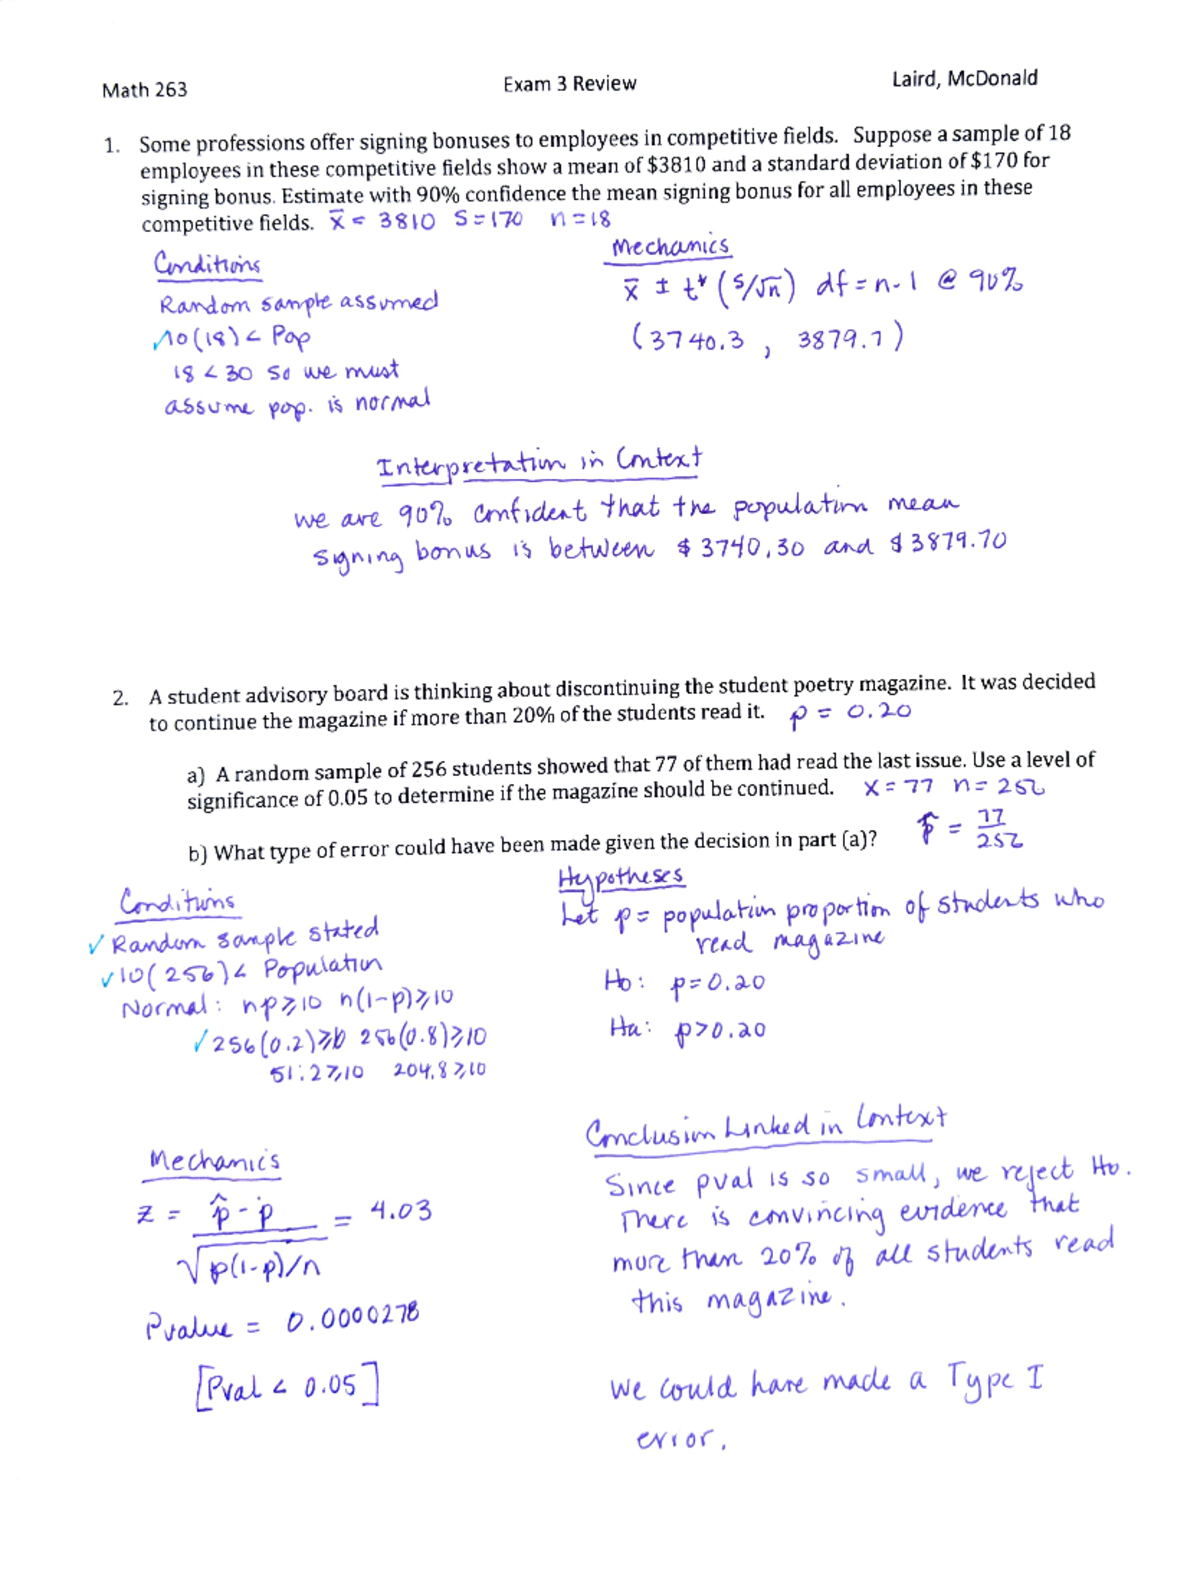 Math 263 Exam 3 Review Laird, McDonald
1. Some professions offer signing bonuses to employees in competitive fields. Suppose a sample of 18
employees in these competitive fields show a mean of $3810 and a standard deviation of $170 for
signing bonus. Estimate with 90% confidence the mean signing bonus for all employees in these
competitive fields. x̄ = 3810 S=170 n=18
Conditions
Random sample assumed
✓10(18) < Pop
18 < 30 so we must
assume pop. is normal
Mechanics
x̄ ± t* (s/√n) df = n-1 @ 90%
(3740.3, 3879.7)
Interpretation in Context
we are 90% confident that the population mean
signing bonus is between $3740.30 and $3879.70
2. A student advisory board is thinking about discontinuing the student poetry magazine. It was decided
to continue the magazine if more than 20% of the students read it. p = 0.20
a) A random sample of 256 students showed that 77 of them had read the last issue. Use a level of
significance of 0.05 to determine if the magazine should be continued. x = 77 n = 256
b) What type of error could have been made given the decision in part (a)? p̂ = 77/256
Conditions
✓ Random sample stated
✓ 10(256) < Population
Normal: np ≥ 10 n(1-p) ≥ 10
✓ 256(0.2) ≥ 10 256(0.8) ≥ 10
51.2 ≥ 10 204.8 ≥ 10
Hypotheses
Let p = population proportion of students who
read magazine
Ho: p = 0.20
Ha: p > 0.20
Mechanics
z = p̂ - p / √p(1-p)/n = 4.03
Pvalue = 0.0000278
[Pval < 0.05]
Conclusion Linked in Context
Since pval is so small, we reject Ho.
There is convincing evidence that
more than 20% of all students read
this magazine.
We could have made a Type I
error.